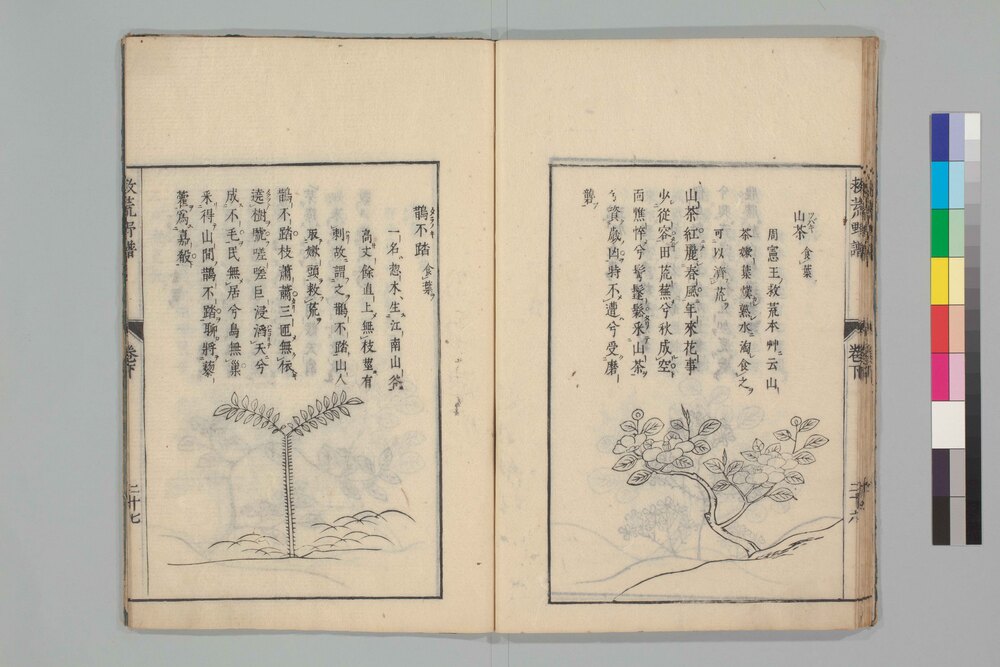 救荒野譜
卷下
二十六
山茶 食葉
周憲王救荒本艸云山
茶嫩葉煠熟水淘食之
可以濟荒
山茶紅麗春風年來花事
少從容田荒蕉兮秋成空
面憔悴兮髩髼鬆采山茶
兮資歲凶時不遭兮受磨
礱
鵲不踏 食葉
一名惣木生江南山谷
高丈餘直上無枝莖有
刺故謂之鵲不踏山人
取嫩頭救荒
鵲不踏枝蕭蕭三匝無依
遶樹號嗟嗟巨浸滔天兮
成不毛民無居兮鳥無巢
采得山間鵲不踏聊將藜
藿爲嘉殽
救荒野譜
卷下
二十七